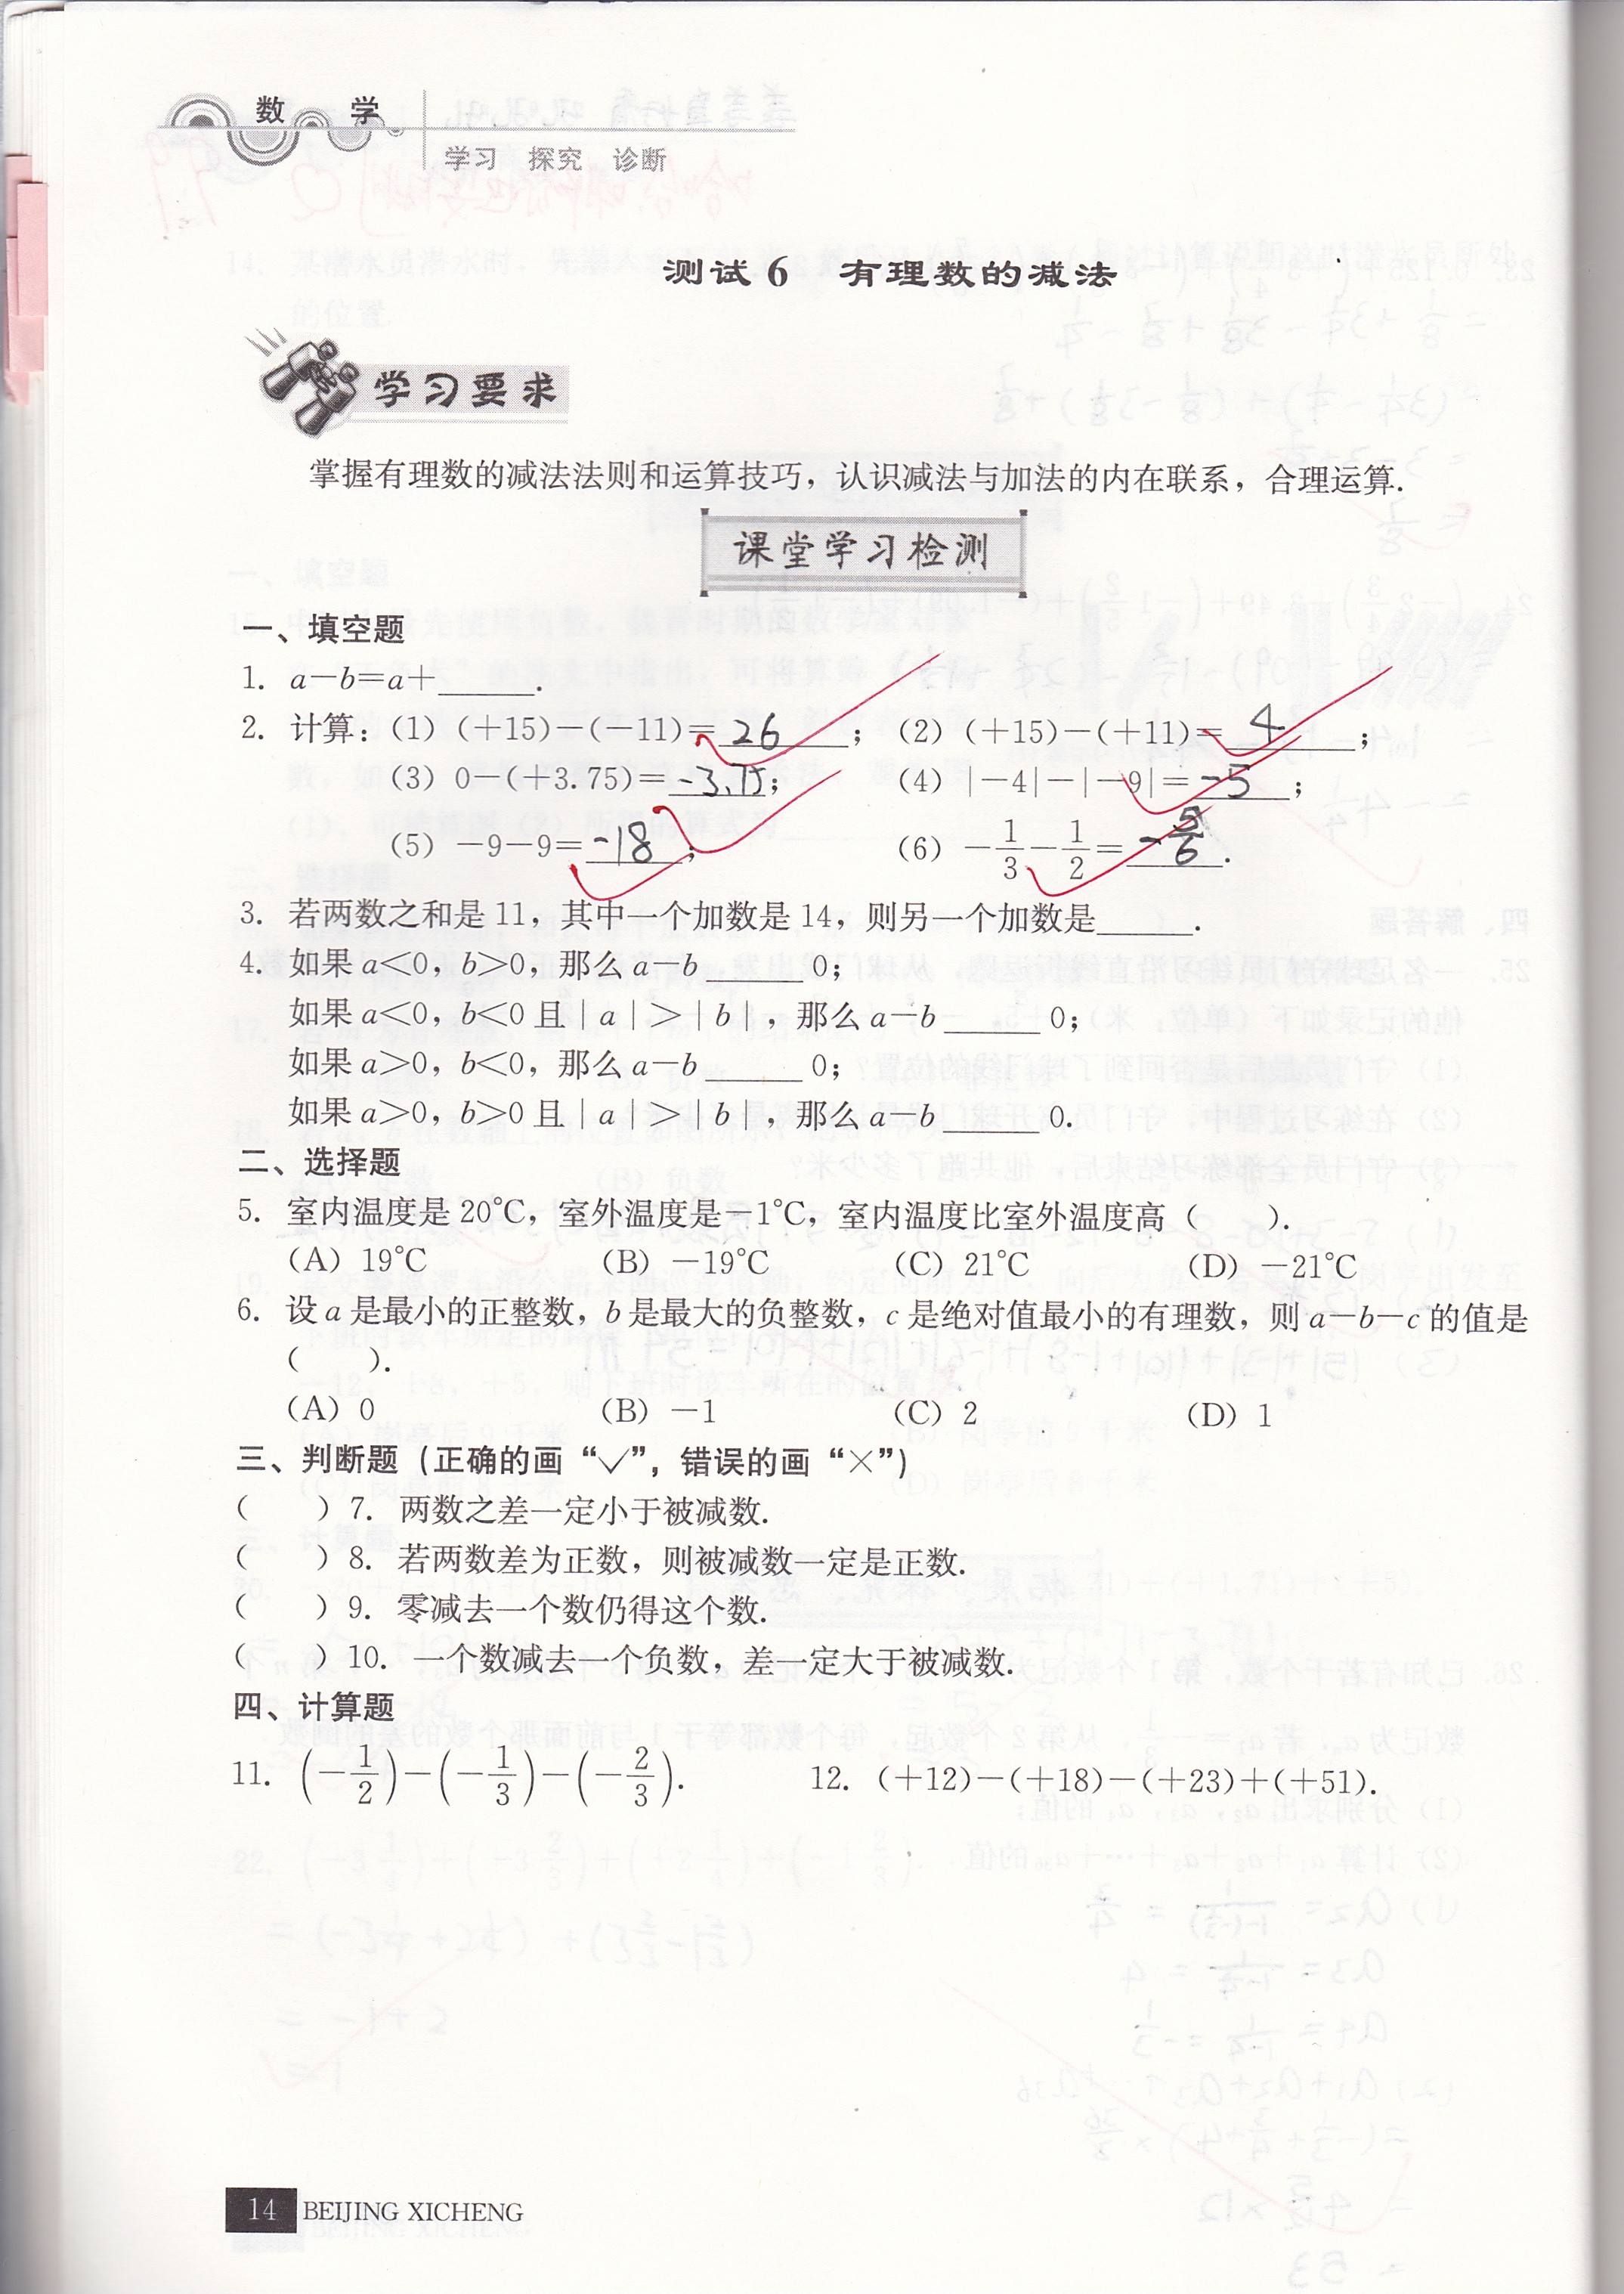 数 学
学习 探究 诊断
测试6 有理数的减法
学习要求
掌握有理数的减法法则和运算技巧，认识减法与加法的内在联系，合理运算.
课堂学习检测
一、填空题
1. a－b＝a＋______.
2. 计算：(1) (＋15)－(－11)＝26； (2) (＋15)－(＋11)＝4；
(3) 0－(＋3.75)＝-3.75； (4) |－4|－|－9|＝-5；
(5) －9－9＝-18； (6) －1/3－1/2＝-5/6.
3. 若两数之和是11，其中一个加数是14，则另一个加数是______.
4. 如果a＜0，b＞0，那么a－b______0；
如果a＜0，b＜0且|a|＞|b|，那么a－b______0；
如果a＞0，b＜0，那么a－b______0；
如果a＞0，b＞0且|a|＞|b|，那么a－b______0.
二、选择题
5. 室内温度是20℃，室外温度是－1℃，室内温度比室外温度高（　　）.
(A) 19℃ (B) －19℃ (C) 21℃ (D) －21℃
6. 设a是最小的正整数，b是最大的负整数，c是绝对值最小的有理数，则a－b－c的值是
（　　）.
(A) 0 (B) －1 (C) 2 (D) 1
三、判断题（正确的画“✓”，错误的画“×”）
（　　）7. 两数之差一定小于被减数.
（　　）8. 若两数差为正数，则被减数一定是正数.
（　　）9. 零减去一个数仍得这个数.
（　　）10. 一个数减去一个负数，差一定大于被减数.
四、计算题
11. (－1/2)－(－1/3)－(－2/3). 12. (＋12)－(＋18)－(＋23)＋(＋51).
14 BEIJING XICHENG